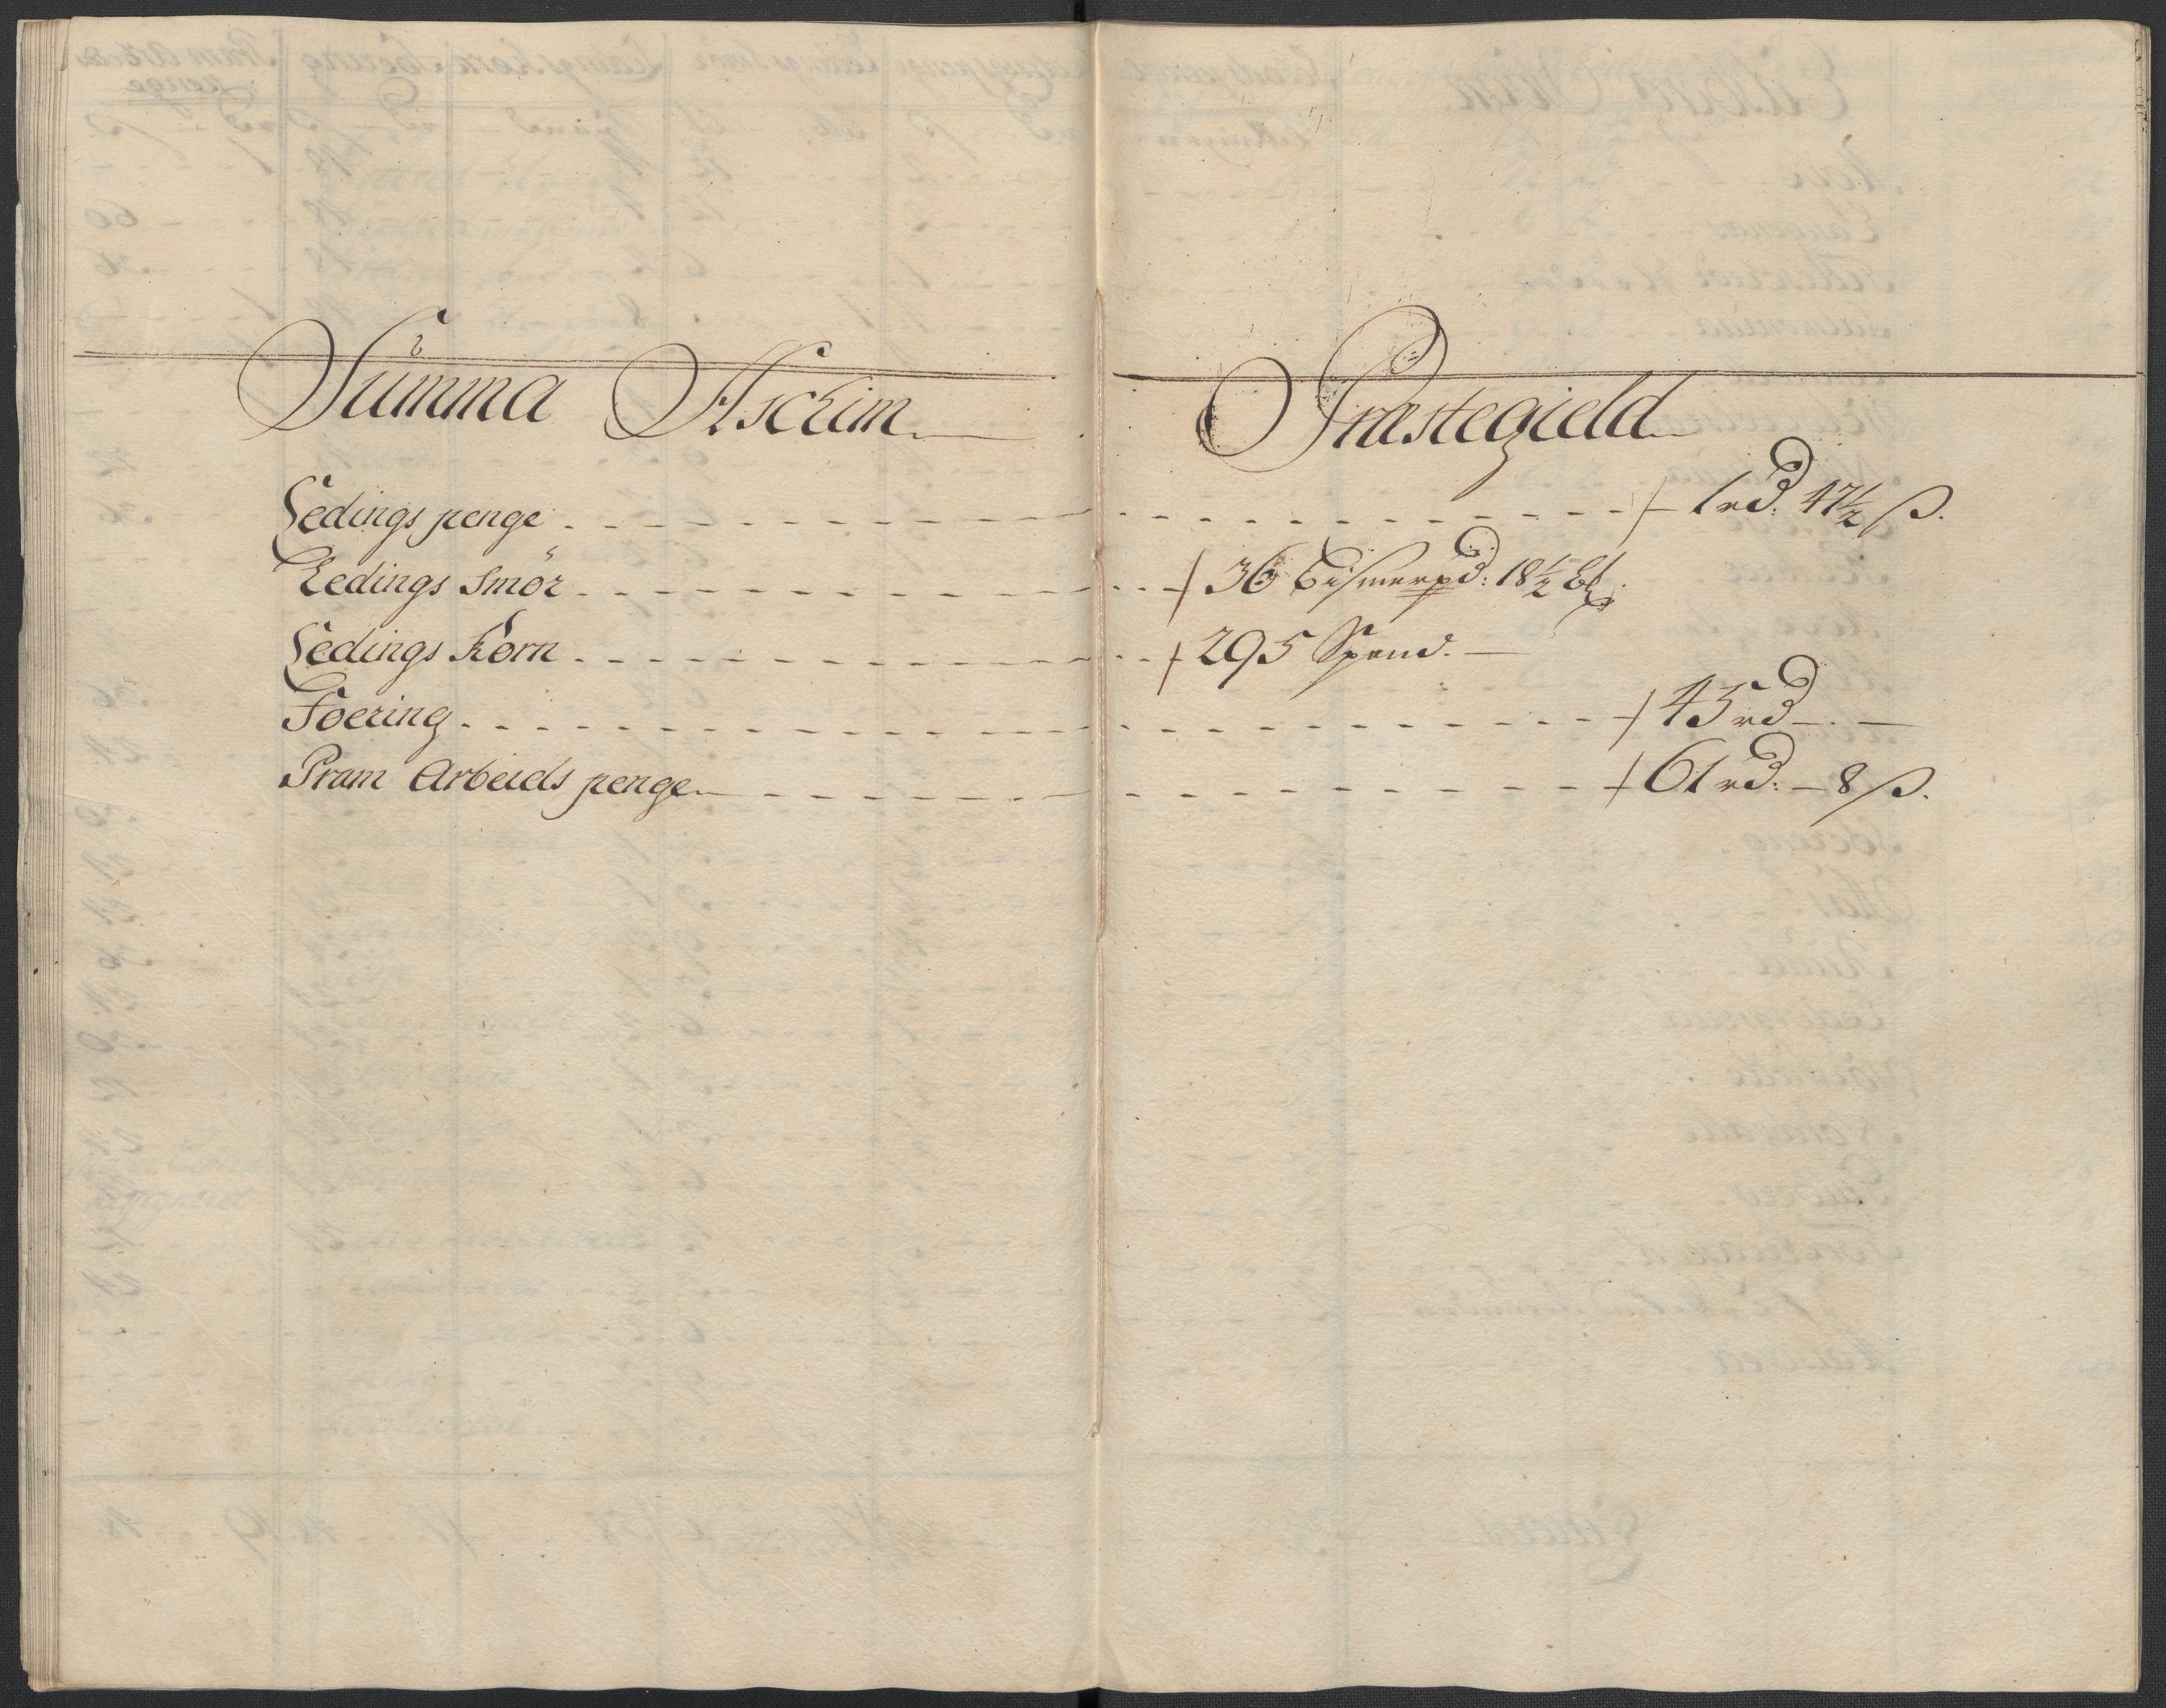 Summa Aschim Præstegield
Ledings penge - 1 rd: 47½ ß.
Ledings Smör - 36 Bismerpd: 18½ ℔
Ledings Korn - 295 Spand.
Foering - 45 rd
Pram Arbeids penge - 61 rd: - 8 ß.